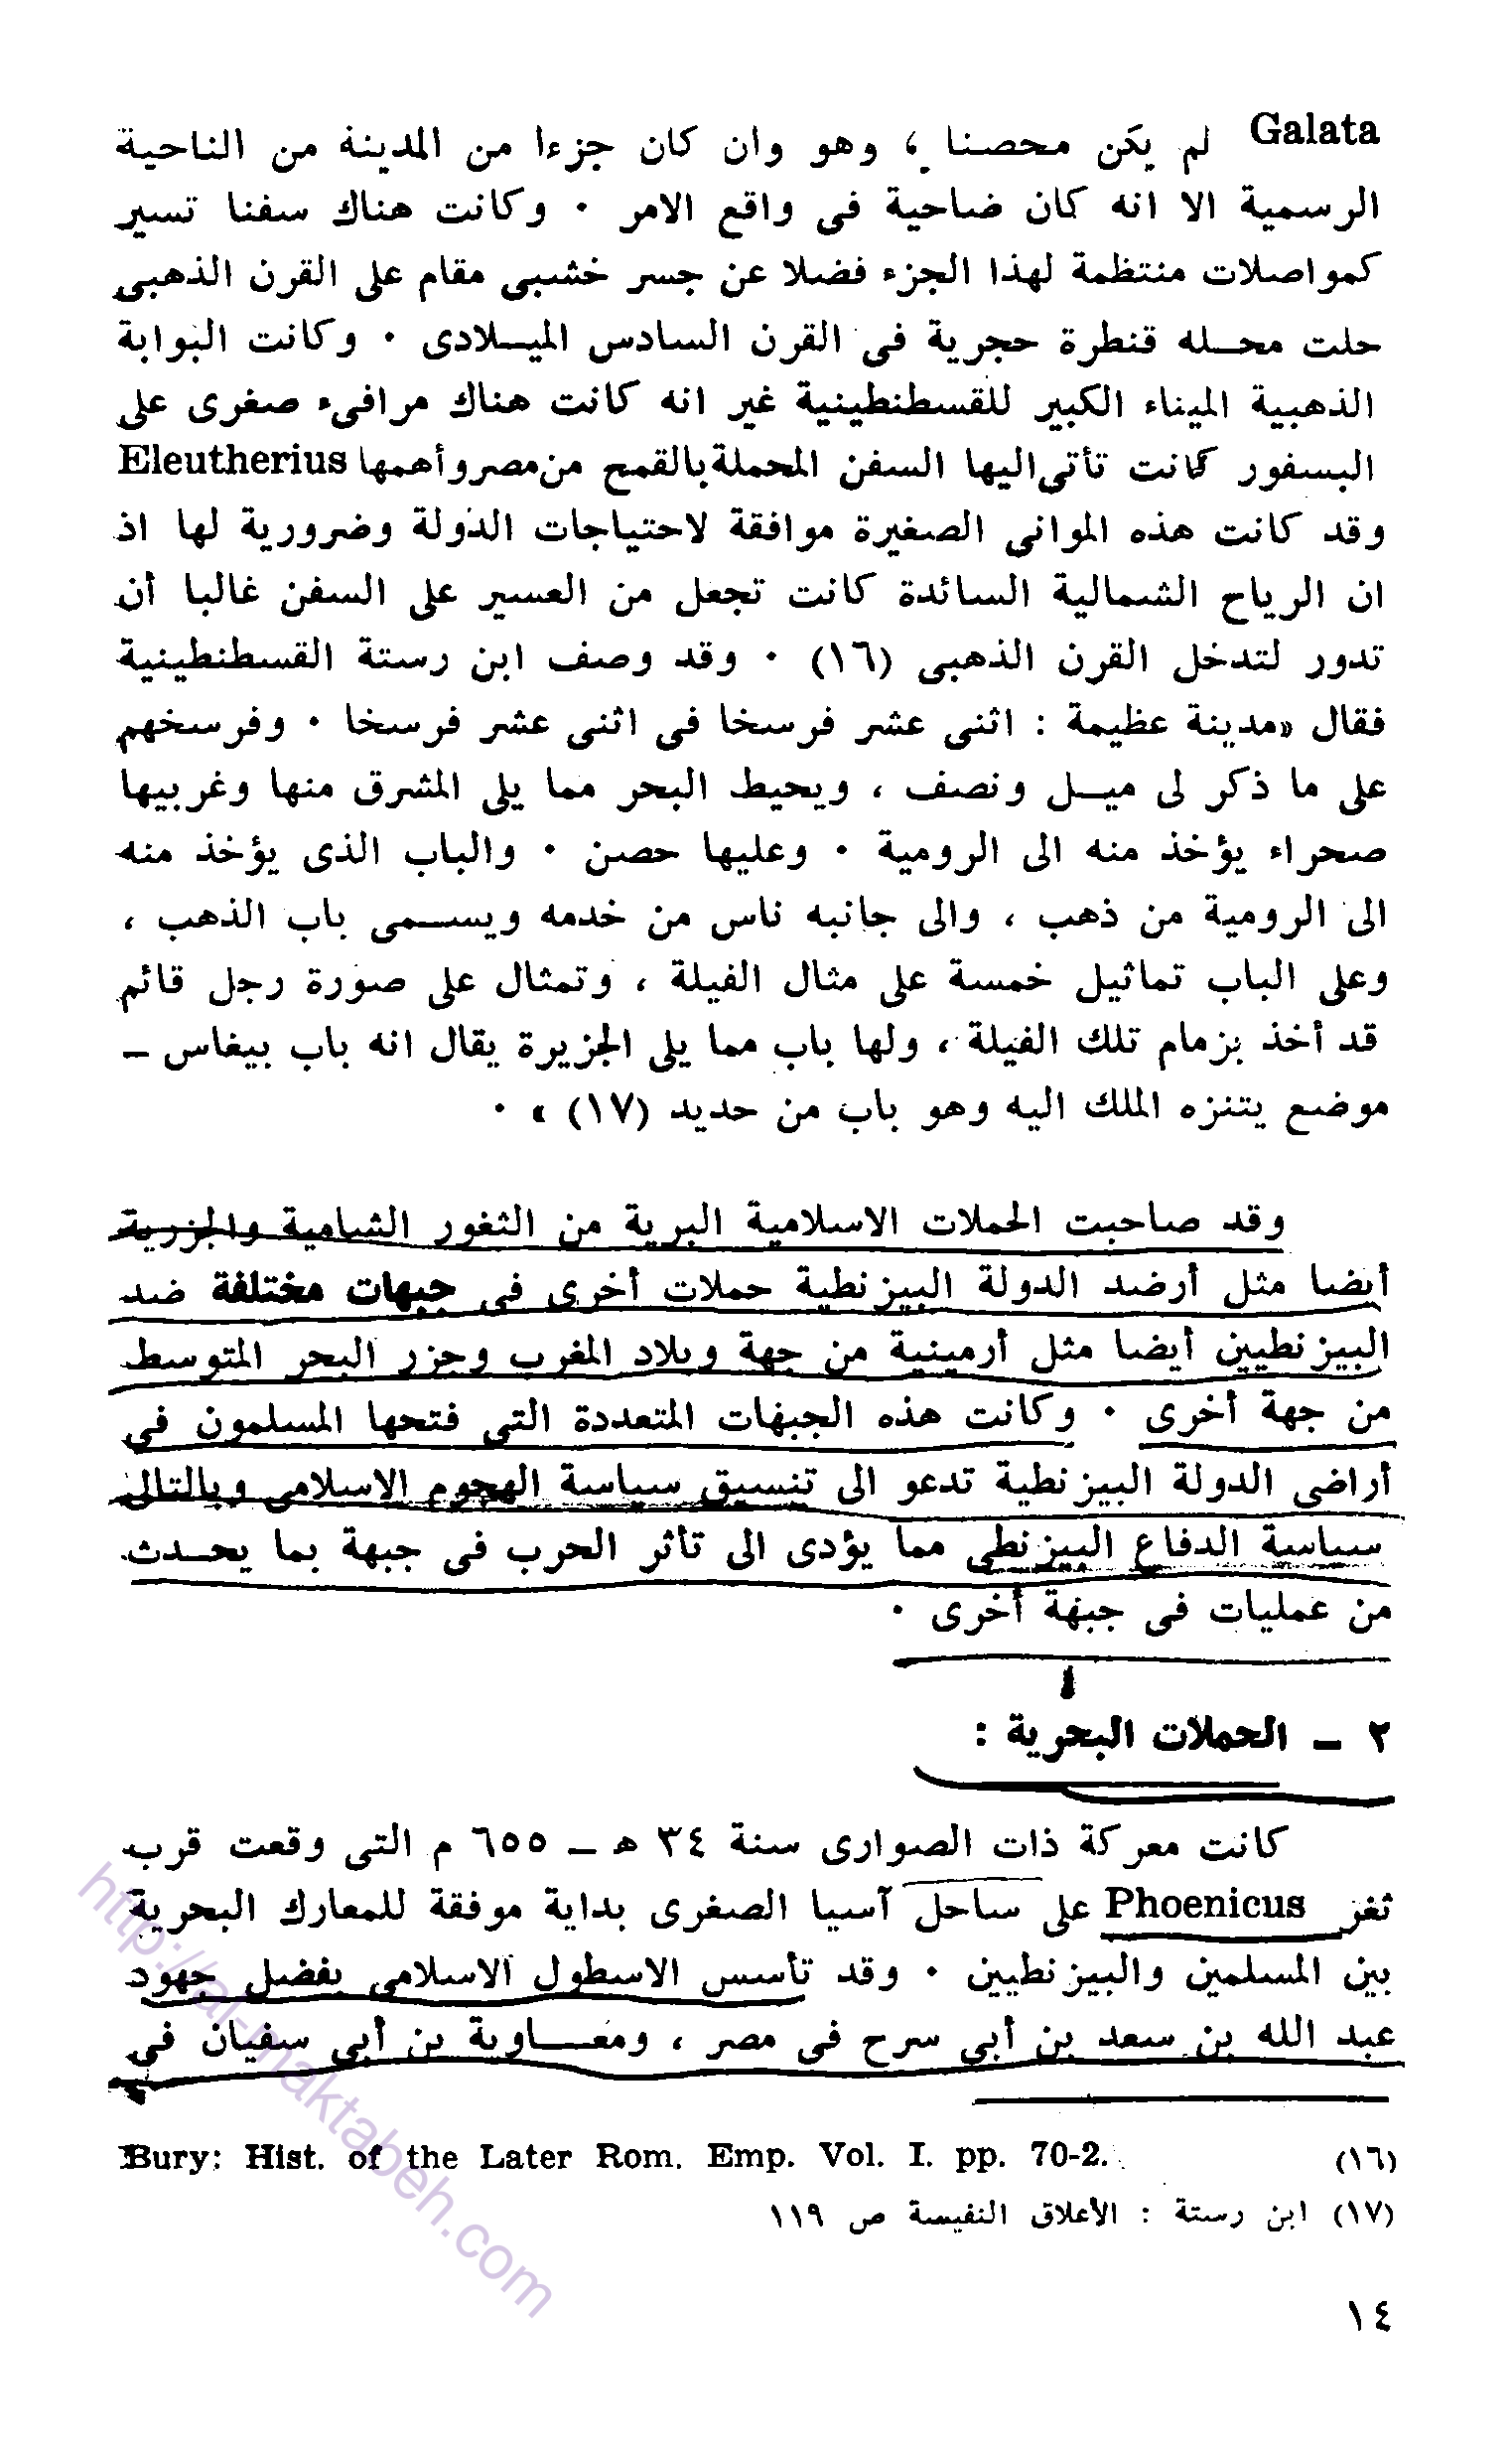 Galata لم يكن محصنا ، وهو وان كان جزءا من المدينة من الناحية
الرسمية الا انه كان ضاحية فى واقع الامر ٠ وكانت هناك سفنا تسير
كمواصلات منتظمة لهذا الجزء فضلا عن جسر خشبى مقام على القرن الذهبى
حلت محله قنطرة حجرية فى القرن السادس الميلادى ٠ وكانت البوابة
الذهبية الميناء الكبير للقسطنطينية غير انه كانت هناك مرافىء صغرى على
البسفور كانت تأتى اليها السفن المحملة بالقمح من مصر وأهمها Eleutherius
وقد كانت هذه الموانى الصغيرة موافقة لاحتياجات الدولة وضرورية لها اذ
ان الرياح الشمالية السائدة كانت تجعل من العسير على السفن غالبا أن
تدور لتدخل القرن الذهبى (١٦) ٠ وقد وصف ابن رستة القسطنطينية
فقال «مدينة عظيمة : اثنى عشر فرسخا فى اثنى عشر فرسخا ٠ وفرسخهم
على ما ذكر لى ميل ونصف ، ويحيط البحر مما يلى المشرق منها وغربيها
صحراء يؤخذ منه الى الرومية ٠ وعليها حصن ٠ والباب الذى يؤخذ منه
الى الرومية من ذهب ، والى جانبه ناس من خدمه ويسمى باب الذهب ،
وعلى الباب تماثيل خمسة على مثال الفيلة ، وتمثال على صورة رجل قائم
قد أخذ بزمام تلك الفيلة ، ولها باب مما يلى الجزيرة يقال انه باب بيغاس –
موضع يتنزه الملك اليه وهو باب من حديد (١٧) » ٠
وقد صاحبت الحملات الاسلامية البرية من الثغور الشامية والجزرية
أيضا مثل أرضد الدولة البيزنطية حملات أخرى فى جبهات مختلفة ضد
البيزنطيين أيضا مثل أرمينية من جهة وبلاد المغرب وجزر البحر المتوسط
من جهة أخرى ٠ وكانت هذه الجبهات المتعددة التى فتحها المسلمون فى
أراضى الدولة البيزنطية تدعو الى تنسيق سياسة الهجوم الاسلامى وبالتالى
سياسة الدفاع البيزنطى مما يؤدى الى تأثر الحرب فى جبهة بما يحدث
من عمليات فى جبهة أخرى ٠
٢ – الحملات البحرية :
كانت معركة ذات الصوارى سنة ٣٤ ه – ٦٥٥ م التى وقعت قرب
ثغر Phoenicus على ساحل آسيا الصغرى بداية موفقة للمعارك البحرية
بين المسلمين والبيزنطيين ٠ وقد تأسس الاسطول الاسلامى بفضل جهود
عبد الله بن سعد بن أبى سرح فى مصر ، ومعاوية بن أبى سفيان فى
(١٦) Bury: Hist. of the Later Rom. Emp. Vol. I. pp. 70-2.
(١٧) ابن رستة : الأعلاق النفيسة ص ١١٩
١٤
http://al-maktabeh.com